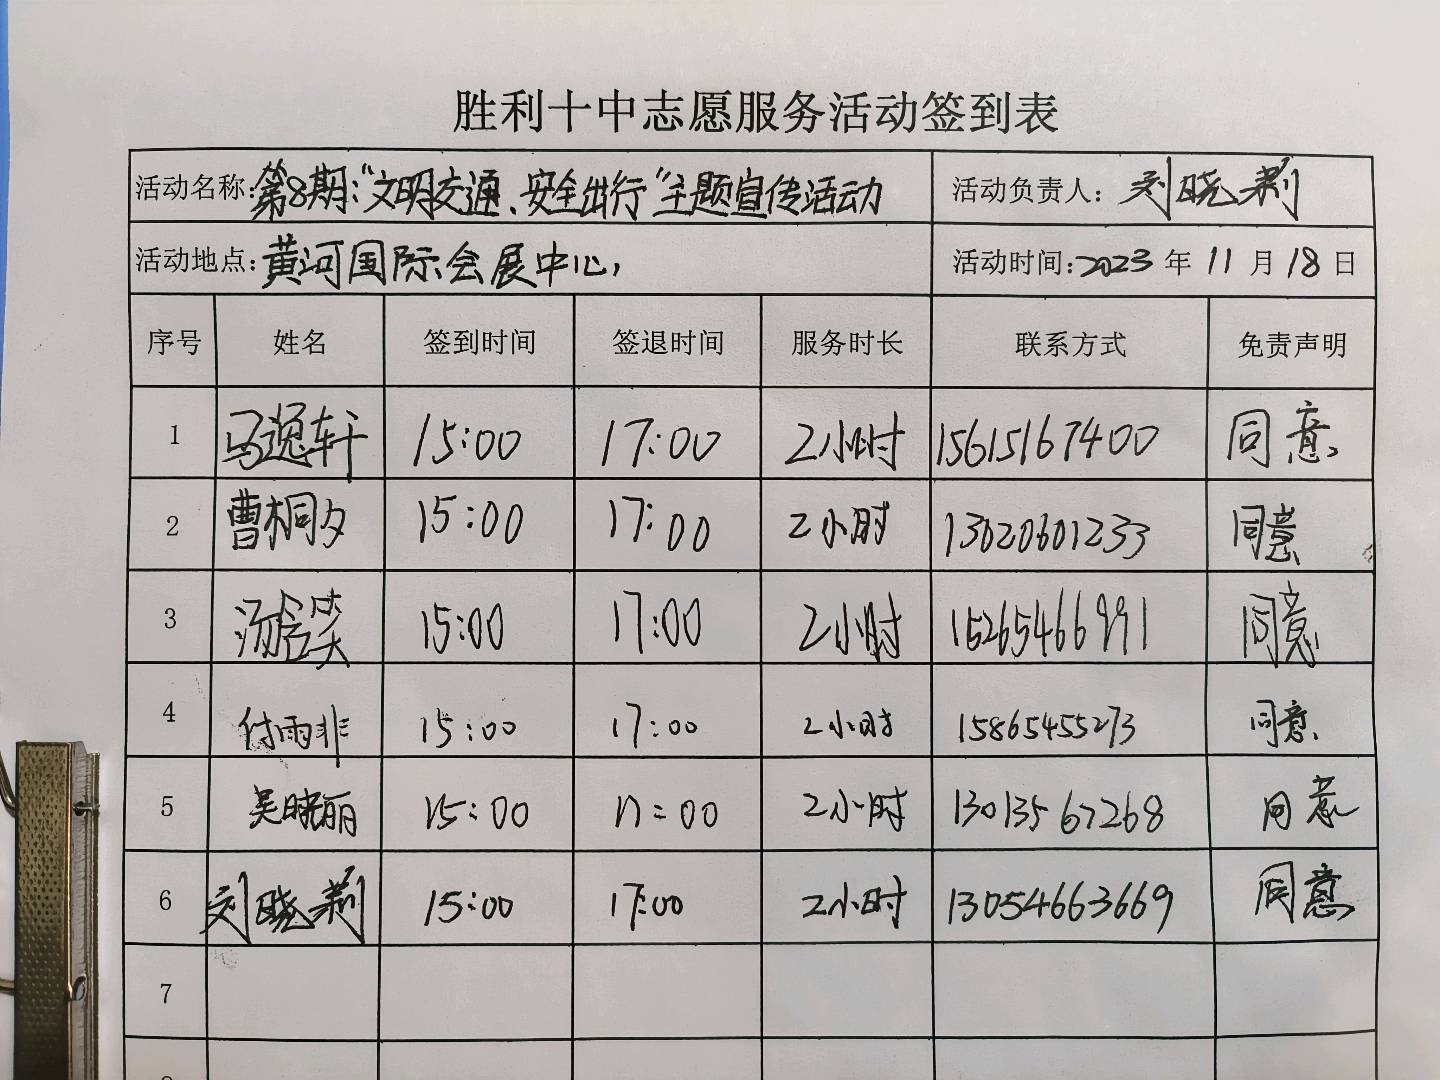 胜利十中志愿服务活动签到表
活动名称:第8期:"文明交通、安全出行"主题宣传活动 活动负责人: 刘晓莉
活动地点:黄河国际会展中心, 活动时间:2023 年 11 月 18 日
序号 姓名 签到时间 签退时间 服务时长 联系方式 免责声明
1 马逸轩 15:00 17:00 2小时 15615167400 同意
2 曹桐夕 15:00 17:00 2小时 13020601233 同意
3 汤含笑 15:00 17:00 2小时 15265466991 同意
4 付雨非 15:00 17:00 2小时 15865455273 同意
5 吴晓丽 15:00 17:00 2小时 13013567268 同意
6 刘晓莉 15:00 17:00 2小时 13054663669 同意
7